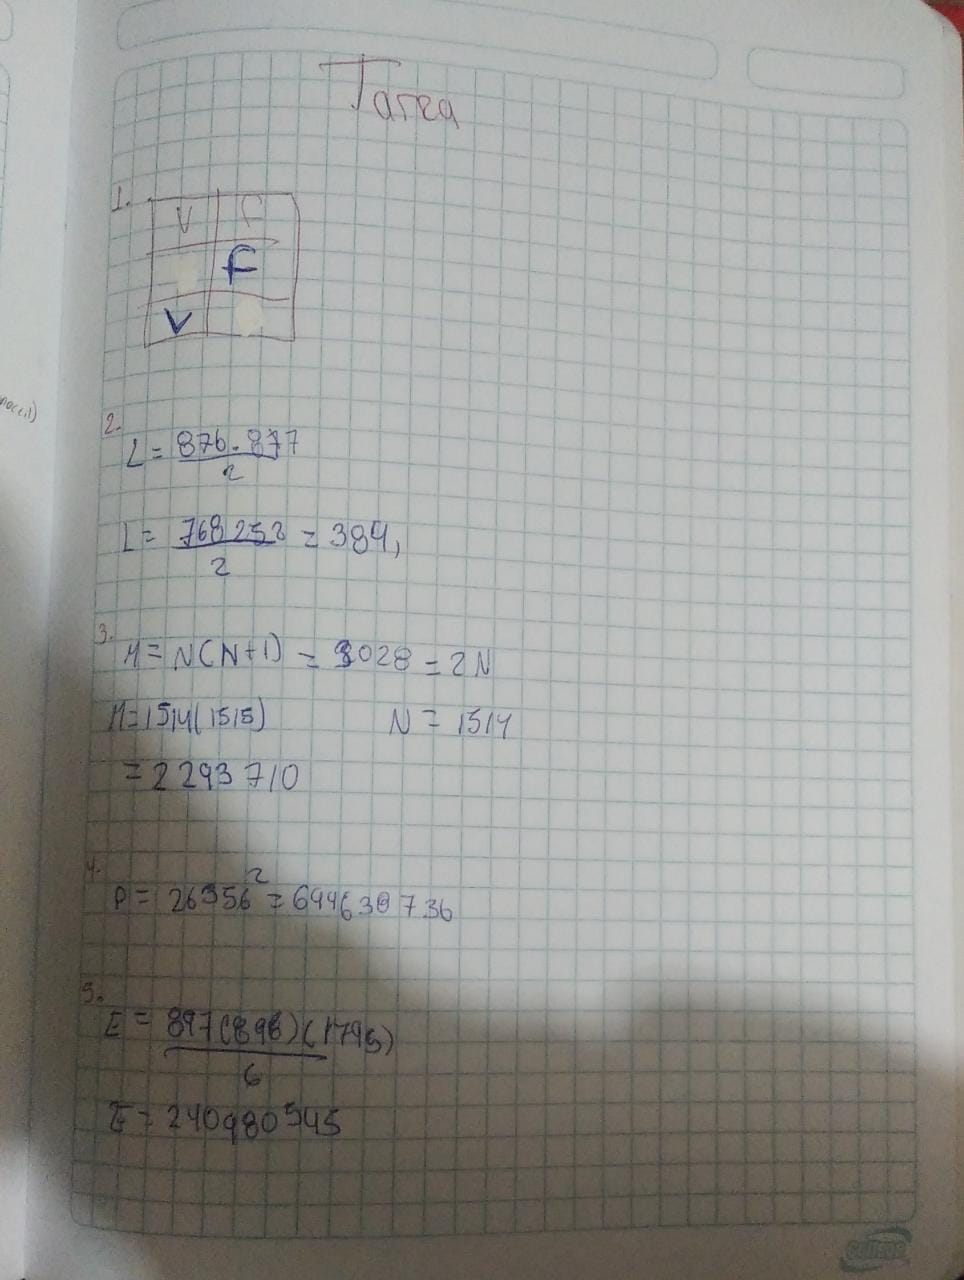 Tarea
1.
V F
F
V
2.
L = 876 . 877
2
L = 768252 = 384,
2
3.
M = N(N+1) = 3028 = 2N
M = 1514(1515) N = 1514
= 2293710
4.
P = 26356² = 694638736
5.
E = 897(898)(1795)
6
E = 240980545